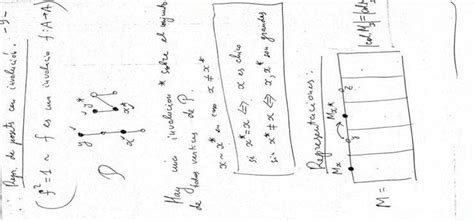 Repr. de posets con involución. -4-
(f²=1 ~ f es una involución f: A→A)
P
y y*
x x*
Hay una involución * sobre el conjunto
de todos vertices de P.
x ~ x* en caso x ≠ x*
si x* = x ⇔ x es chico
si x* ≠ x ⇔ x, x* son grandes
Representaciones:
Mx Mx*
y z
M =
|col. Mx| = |col. Mx*|